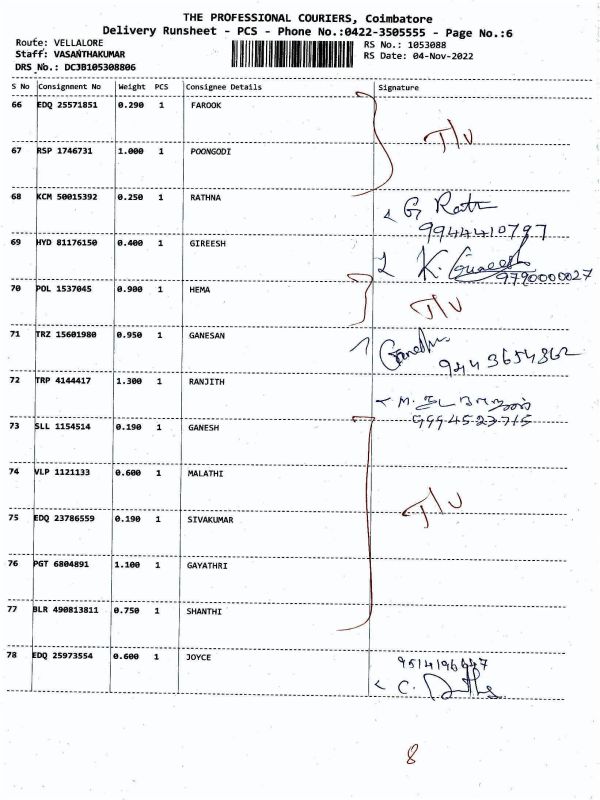 THE PROFESSIONAL COURIERS, Coimbatore
Delivery Runsheet - PCS - Phone No.:0422-3505555 - Page No.:6
Route: VELLALORE
RS No.: 1053088
Staff: VASANTHAKUMAR
RS Date: 04-Nov-2022
DRS No.: DCJB105308806
S No Consignment No Weight PCS Consignee Details Signature
66 EDQ 25571851 0.290 1 FAROOK
T/U
67 RSP 1746731 1.000 1 POONGODI
68 KCM 50015392 0.250 1 RATHNA
9944410797
69 HYD 81176150 0.400 1 GIREESH
9790000027
70 POL 1537045 0.900 1 HEMA
T/U
71 TRZ 15601980 0.950 1 GANESAN
9443654862
72 TRP 4144417 1.300 1 RANJITH
9994523715
73 SLL 1154514 0.190 1 GANESH
74 VLP 1121133 0.600 1 MALATHI
T/U
75 EDQ 23786559 0.190 1 SIVAKUMAR
76 PGT 6804891 1.100 1 GAYATHRI
77 BLR 490813811 0.750 1 SHANTHI
78 EDQ 25973554 0.600 1 JOYCE
8